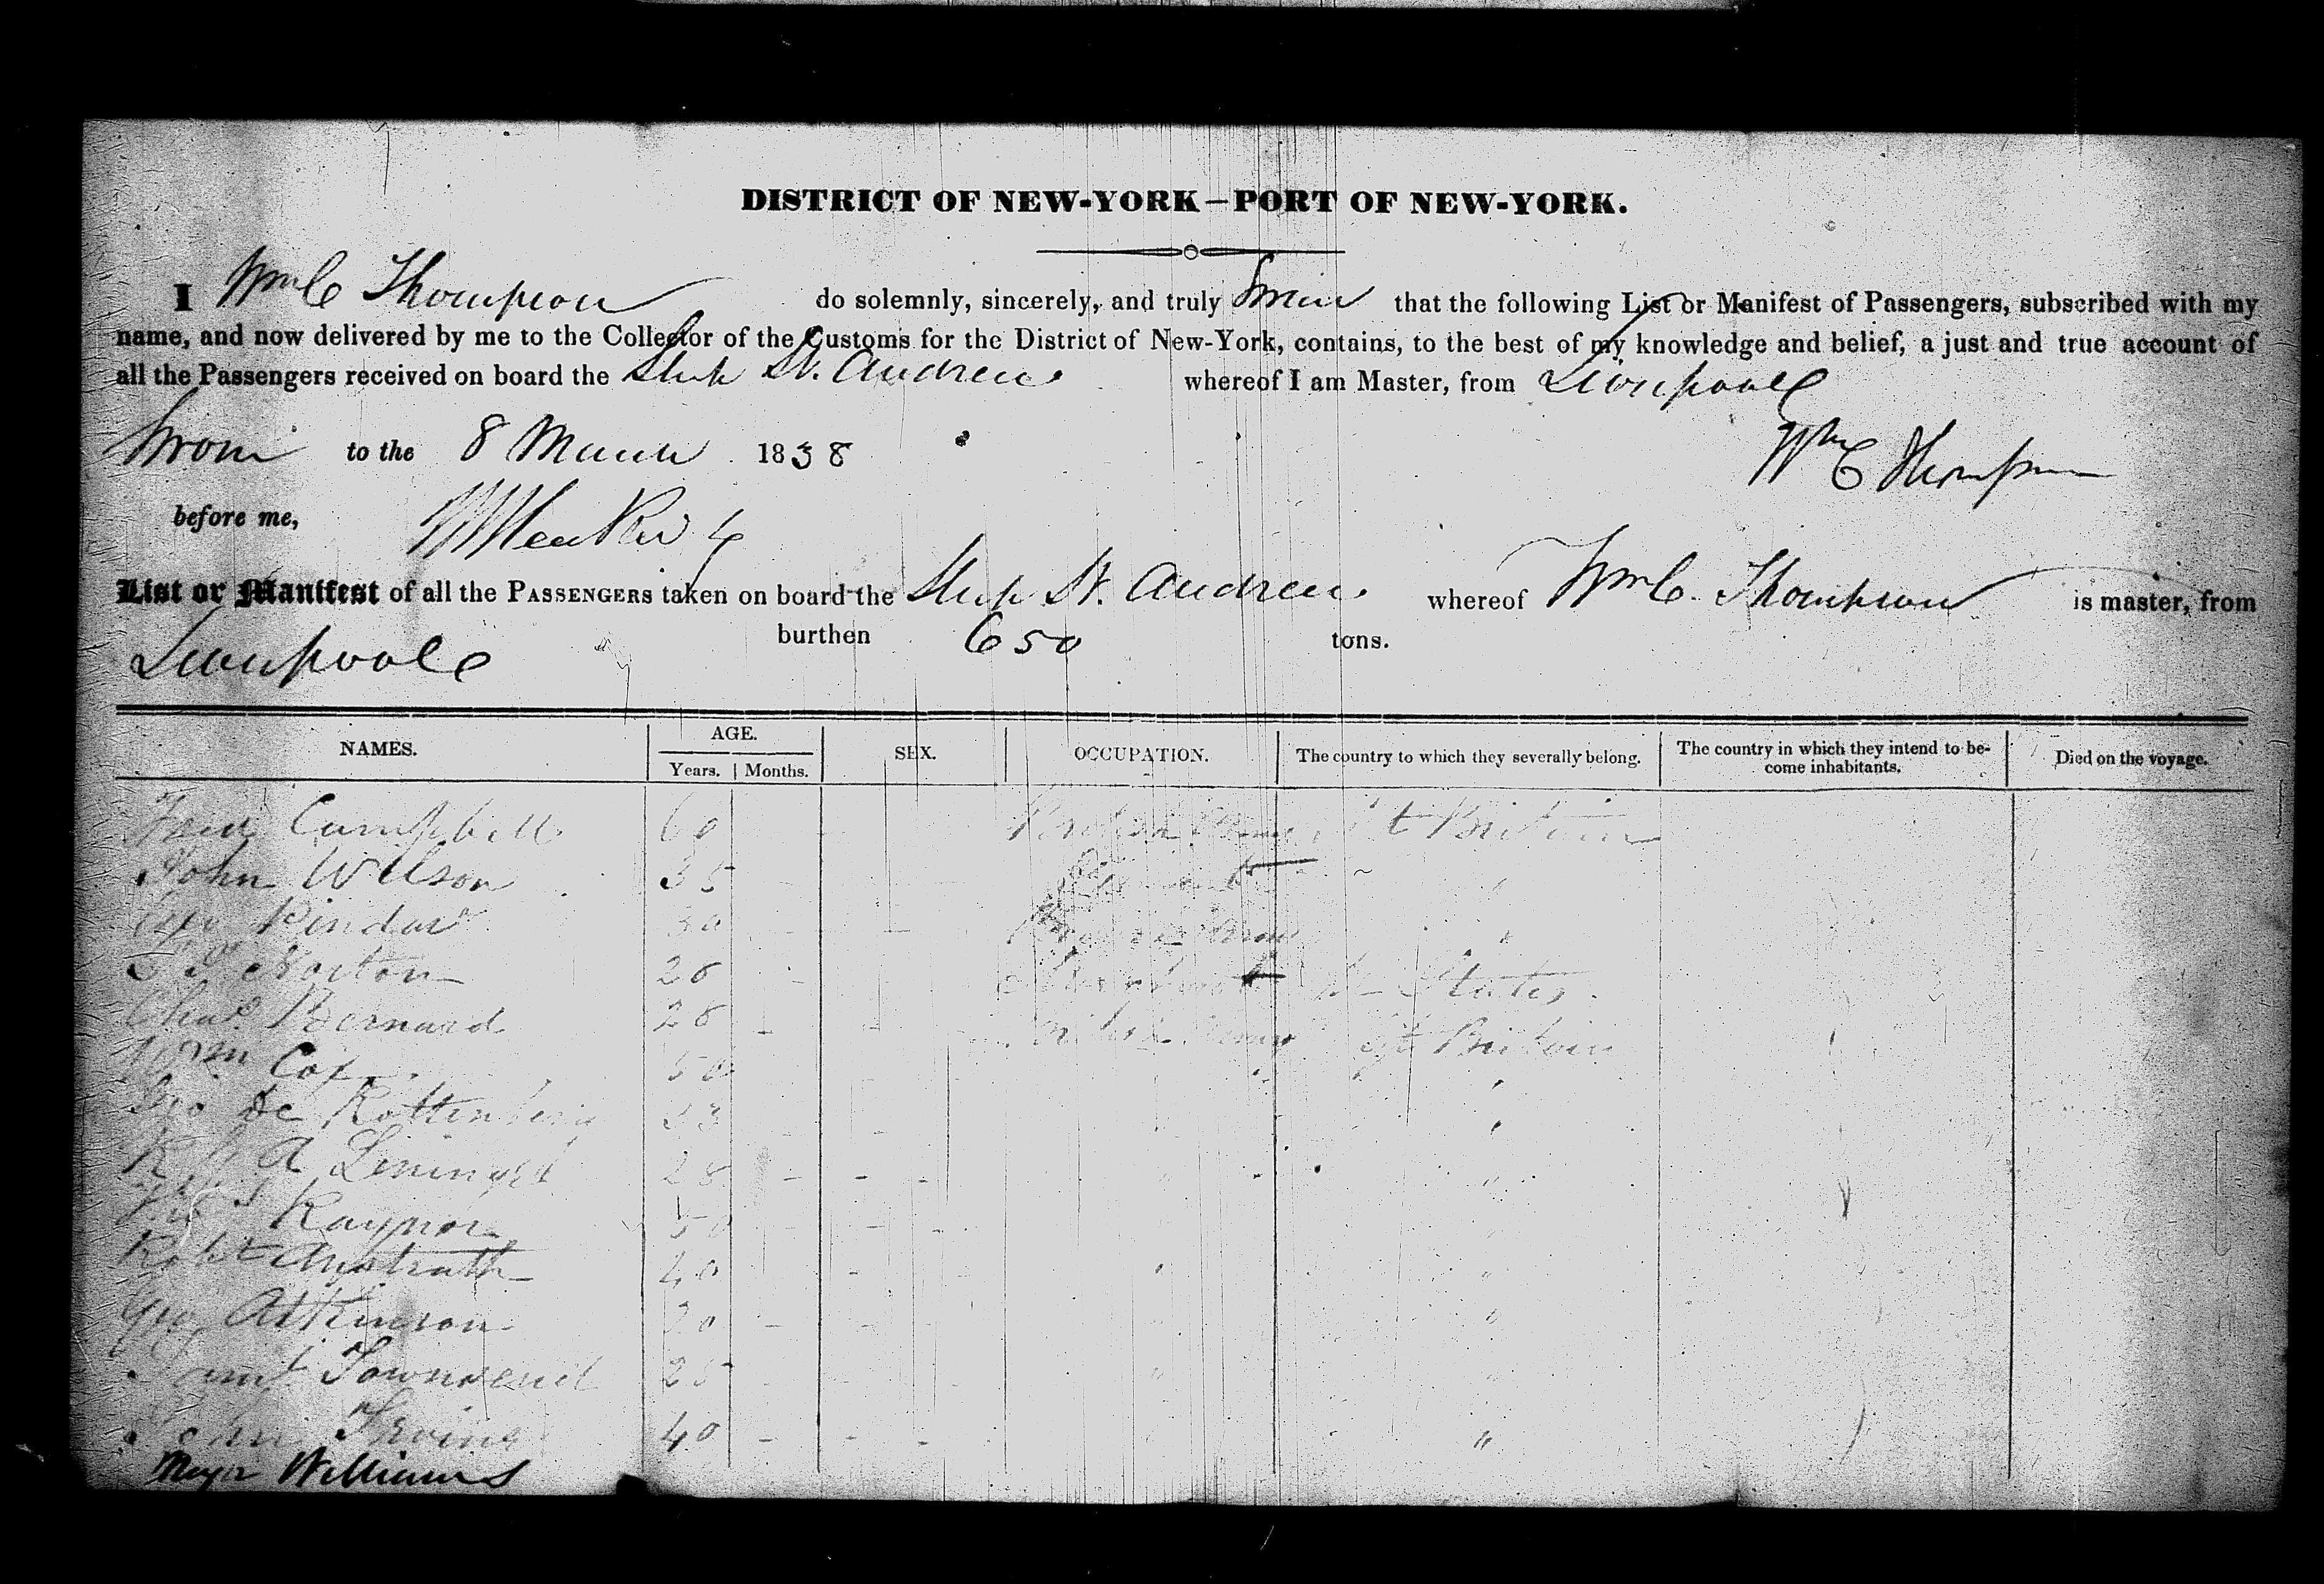 DISTRICT OF NEW-YORK—PORT OF NEW-YORK.
I Wm C Thompson do solemnly, sincerely, and truly Swear that the following List or Manifest of Passengers, subscribed with my
name, and now delivered by me to the Collector of the Customs for the District of New-York, contains, to the best of my knowledge and belief, a just and true account of
all the Passengers received on board the Ship St. Andrew whereof I am Master, from Liverpool
Sworn to the 8 March 1838
Wm C Thompson
before me,
List or Manifest of all the PASSENGERS taken on board the Ship St. Andrew whereof Wm C. Thompson is master, from
Liverpool burthen 650 tons.
NAMES. AGE. SEX. OCCUPATION. The country to which they severally belong. The country in which they intend to be-
come inhabitants. Died on the voyage.
Years. Months.
Campbell 60 Gt Britain
John Wilson 35 - "
Pindar 30 - "
Norton 26 - U States
Chas Bernard 28 - Army Gt Britain
Wm Cox 50 "
Geo de Rottenburg 33 "
R A 28 - - - "
Raynor 50 - - - "
Robt Anstruther 40 - "
Geo Atkinson 20 - - "
Saml Townsend 25 - "
John Irving 40 - - - "
Major Williams